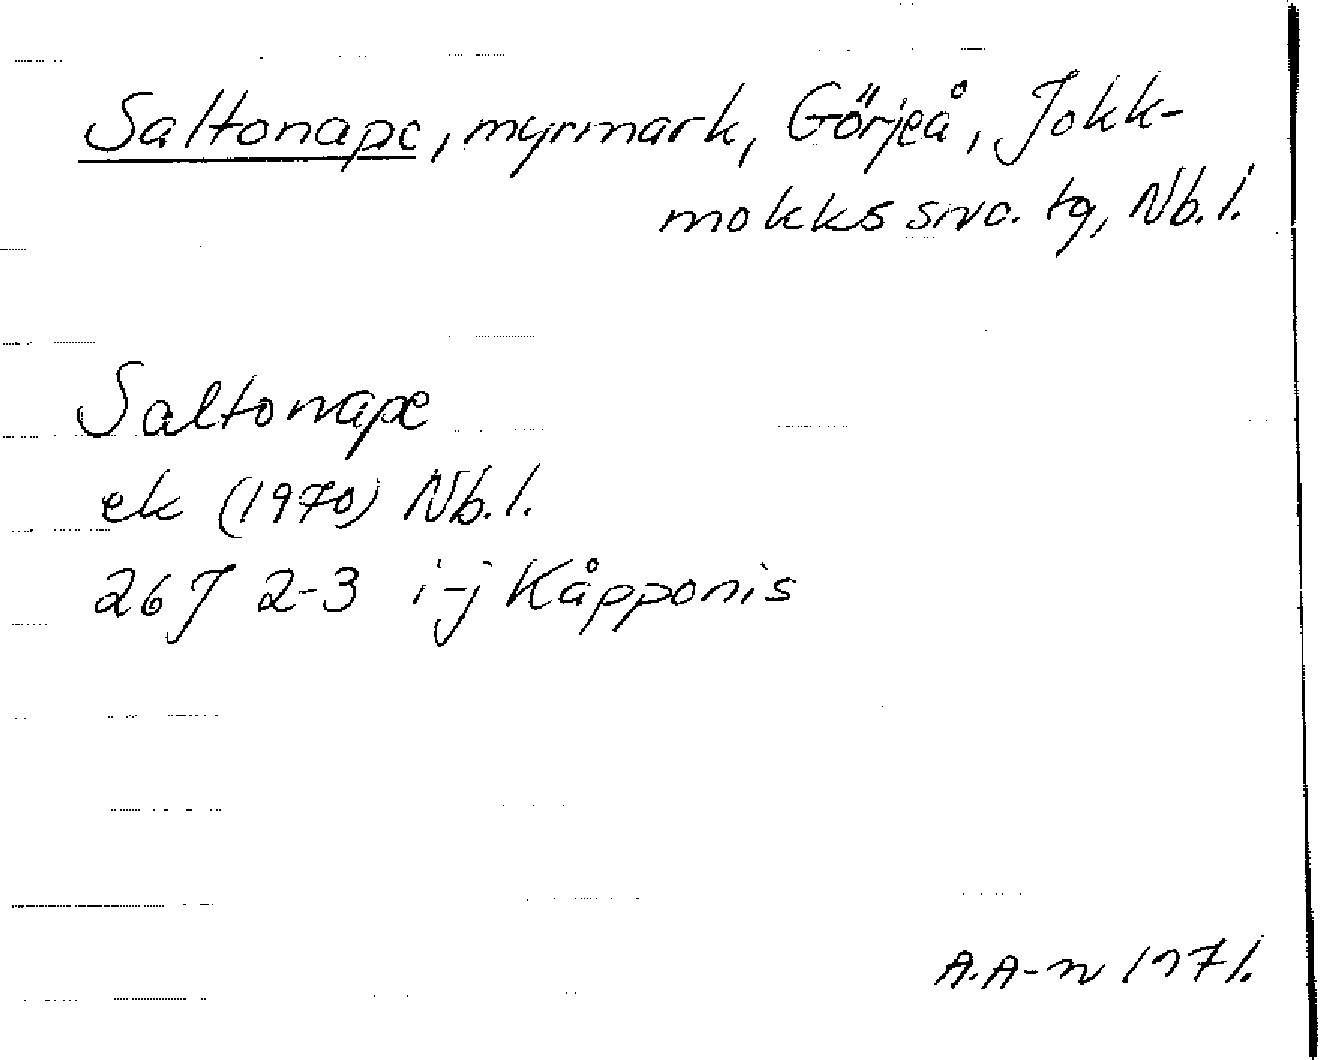 Saltonape, myrmark, Görjeå, Jokk-
mokks sno. tg, Nb. l.
Saltonape
ek (1970) Nb. l.
26 J 2-3 i-j Kåpponis
A.A-n 1971.